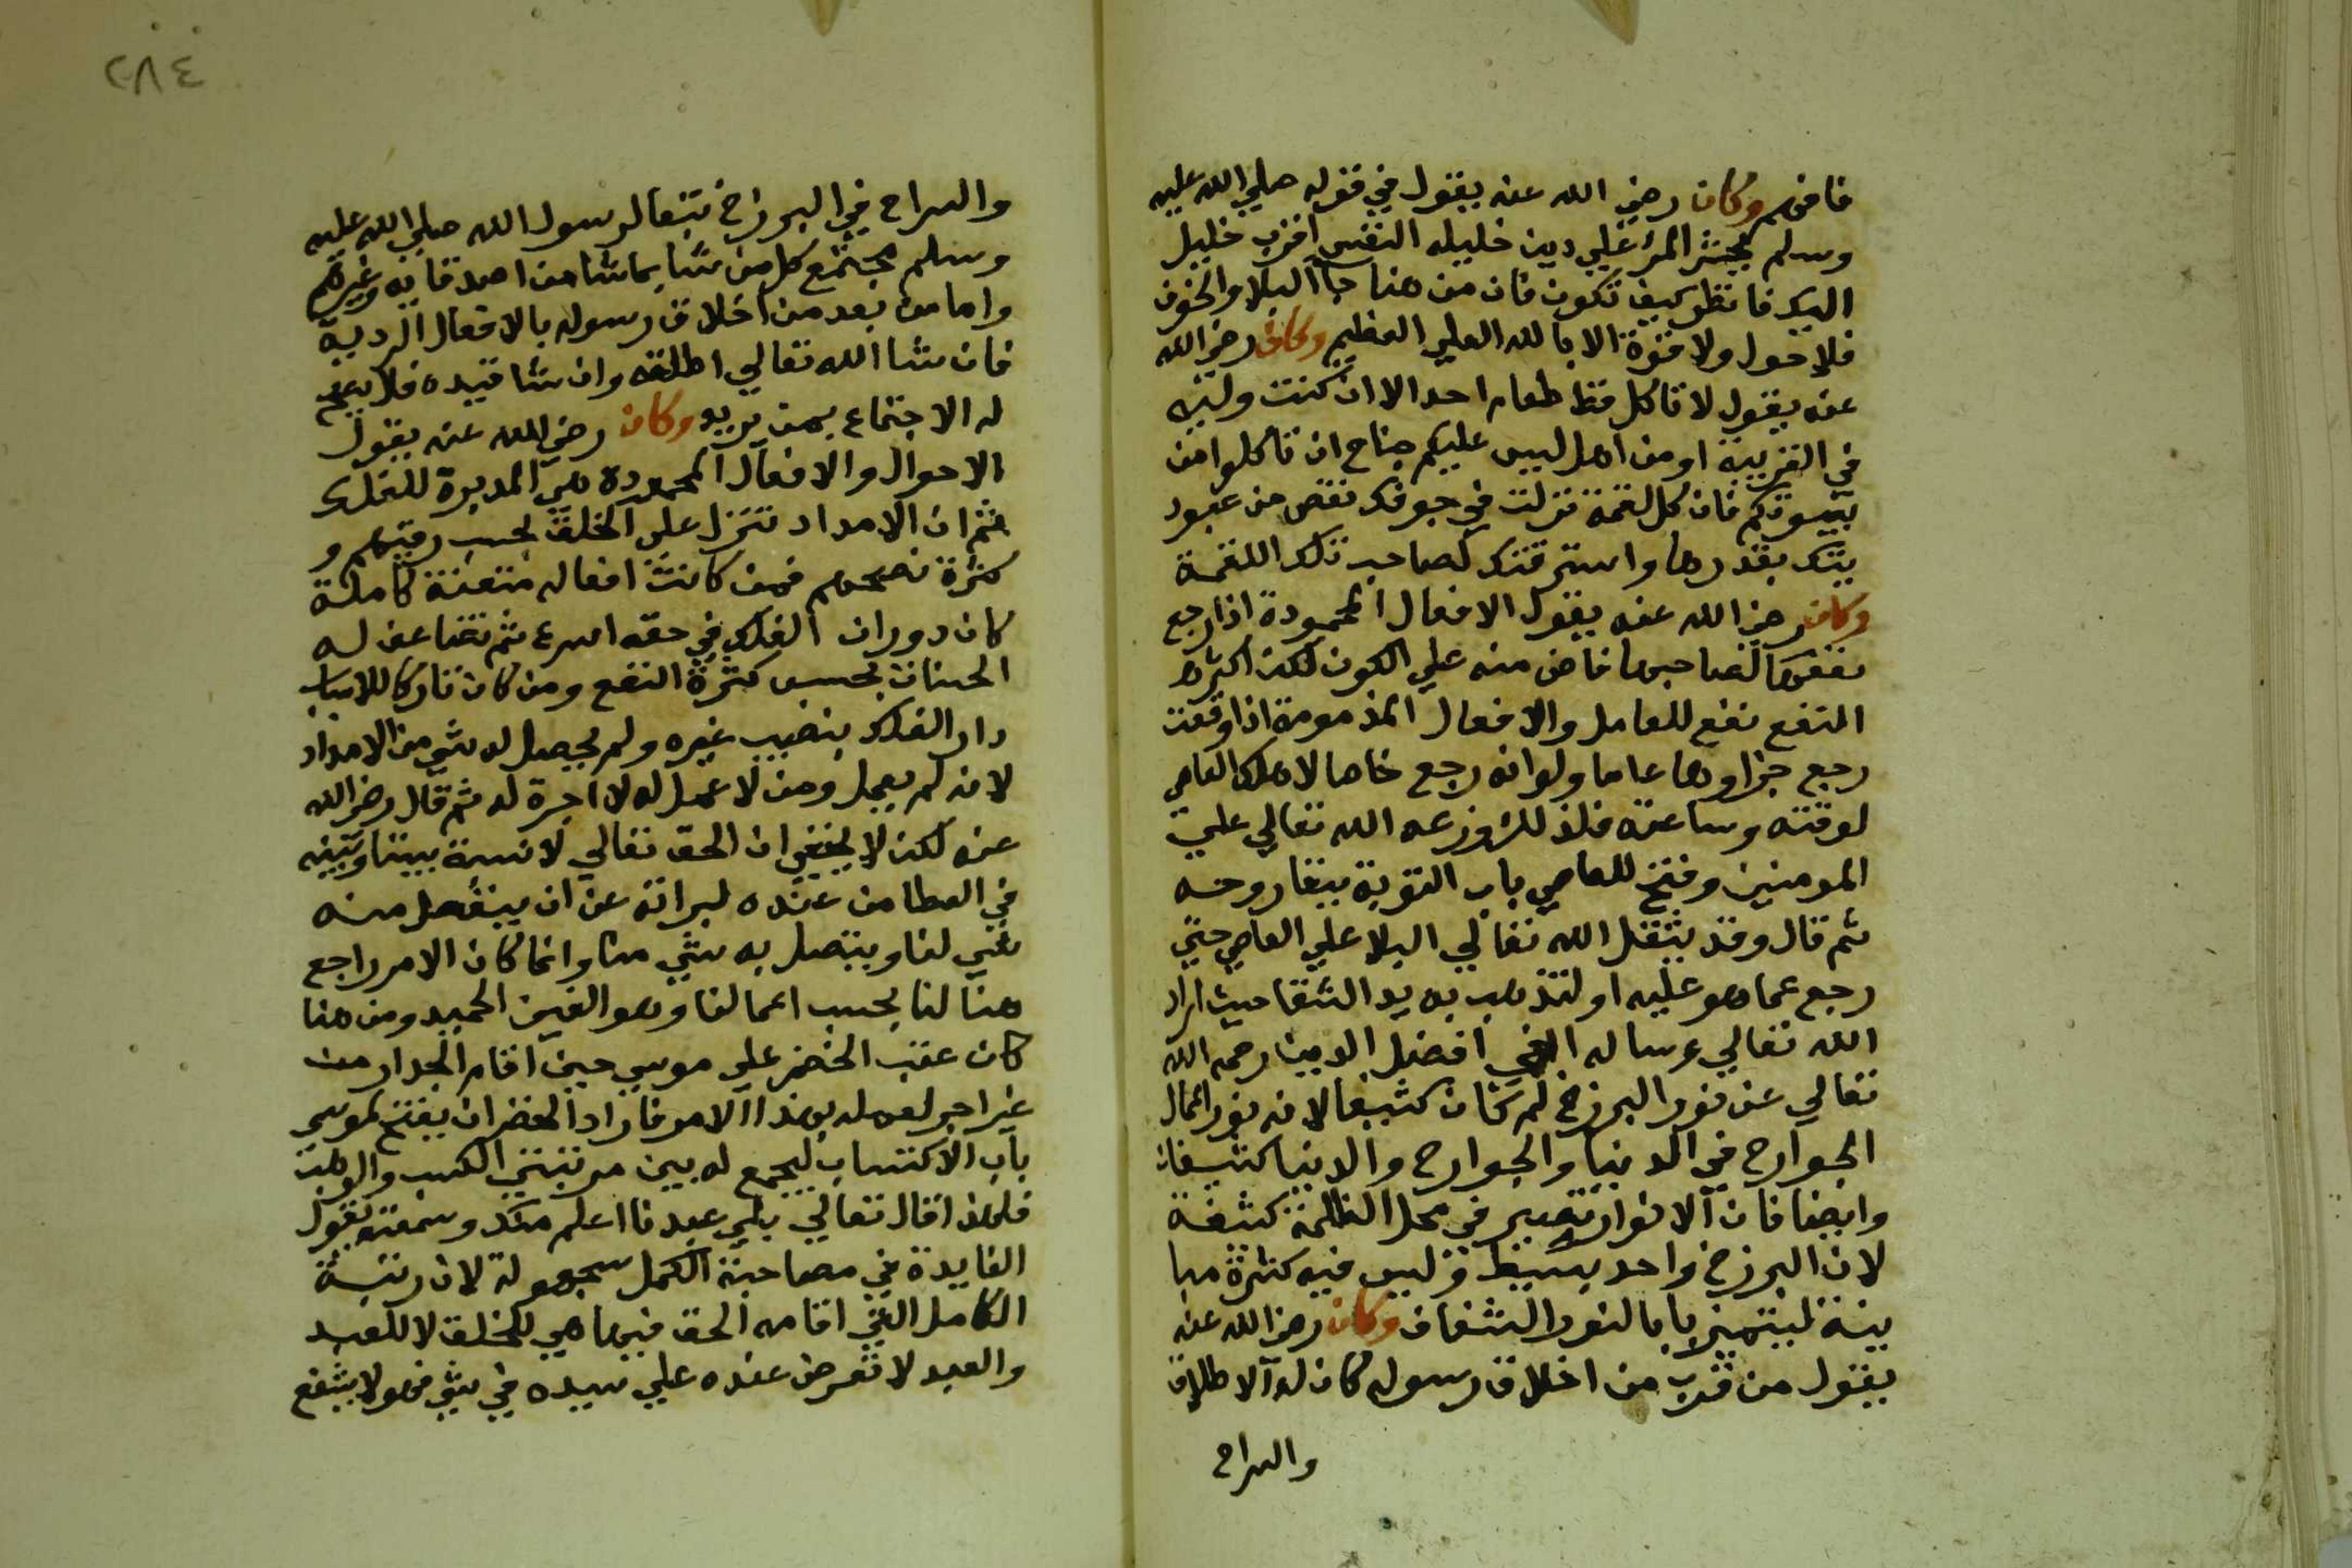 فافهم وكان رضي الله عنه يقول في قوله صلي الله عليه
وسلم يحشر المرء علي دين خليله النفس اقرب خليل
اليك فانظر كيف تكون فان من هنا جا البلا والخوف
فلا حول ولا قوة الا بالله العلي العظيم وكان رضي الله
عنه يقول لا تاكل قط طعام احد الا ان كنت وليه
في التربية او من اهل ليس عليكم جناح ان تاكلوا من
بيوتكم فان كل لقمة نزلت في جوفك نقص من عبود
يتك بقدرها واسترقتك لصاحب تلك اللقمة
وكان رضي الله عنه يقول الافعال المحمودة اذا رجع
نفعها لصاحبها فاض منه علي الكون لكن اكثر
النفع نفع للعامل والافعال المذمومة اذا وقعت
رجع جزاوها عاما ولو انه رجع خاصا لاهلك العاصي
لوقته وساعته فلذلك وزعه الله تعالي علي
المومنين وفتح للعاصي باب التوبة ببقا روحه
ثم قال وقد يثقل الله تعالي البلا علي العاصي حتي
رجع عما هو عليه او لتذهب به يد الشقا حيث اراد
الله تعالي وساله اخي افضل الدين رحمه الله
تعالي عن نور البرزخ لم كان كثيفا لانه نور اعمال
الجوارح في الدنيا والجوارح والدنيا كثيفان
وايضا فان الانوار تصير في محل الظلمة كثيفة
لان البرزخ واحد بسيط وليس فيه كثرة مبا
ينة ليتميز بها بالنور الشفاف وكان رضي الله عنه
يقول من قرب من اخلاق رسوله كان له الاطلاق
والسراح
٢٨٤
والسراح في البرزخ تبعا لرسول الله صلي الله عليه
وسلم يجتمع كل من شا بما شا من اصدقايه وغيرهم
واما من بعد من اخلاق رسوله بالافعال الردية
فان شا الله تعالي اطلقه وان شا قيده فلا يصح
له الاجتماع بمن يريد وكان رضي الله عنه يقول
الاحوال والافعال المحمودة هي المديرة للفلك
ثم ان الامداد تنزل علي الخلق بحسب رتبهم و
كثرة نصحهم فمن كانت افعاله متقنة كاملة
كان دوران الفلك في حقه اسرع ثم تضاعف له
الحسنات بحسب كثرة النفع ومن كان تاركا للاسباب
دار الفلك بنصيب غيره ولم يحصل له شي من الامداد
لانه لم يعمل ومن لا عمل له لا اجرة له ثم قال رضي الله
عنه لكن لا يخفي ان الحق تعالي لا نسبة بيننا وبينه
في العطا من عنده لبراته عن ان ينفصل منه
شي لنا ويتصل به شي منا وانما كان الامر راجع
هنا لنا بحسب اعمالنا وهو الغني الحميد ومن هنا
كان عتب الخضر علي موسي حين اقام الجدار من
غير اجر لعمله بهذا الامر فاراد الخضر ان يفتح لموسي
باب الاكتساب ليجمع له بين مرتبتي الكسب والوهب
فلهذا قال تعالي بلي عبدنا اعلم منك وسمعته يقول
الفايدة في مصاحبة الكمل مجهولة لان رتبة
الكامل التي اقامه الحق فيها هي للخلق لا للعبد
والعبد لا تعرض عنده علي سيده في شي فهو لا يشفع